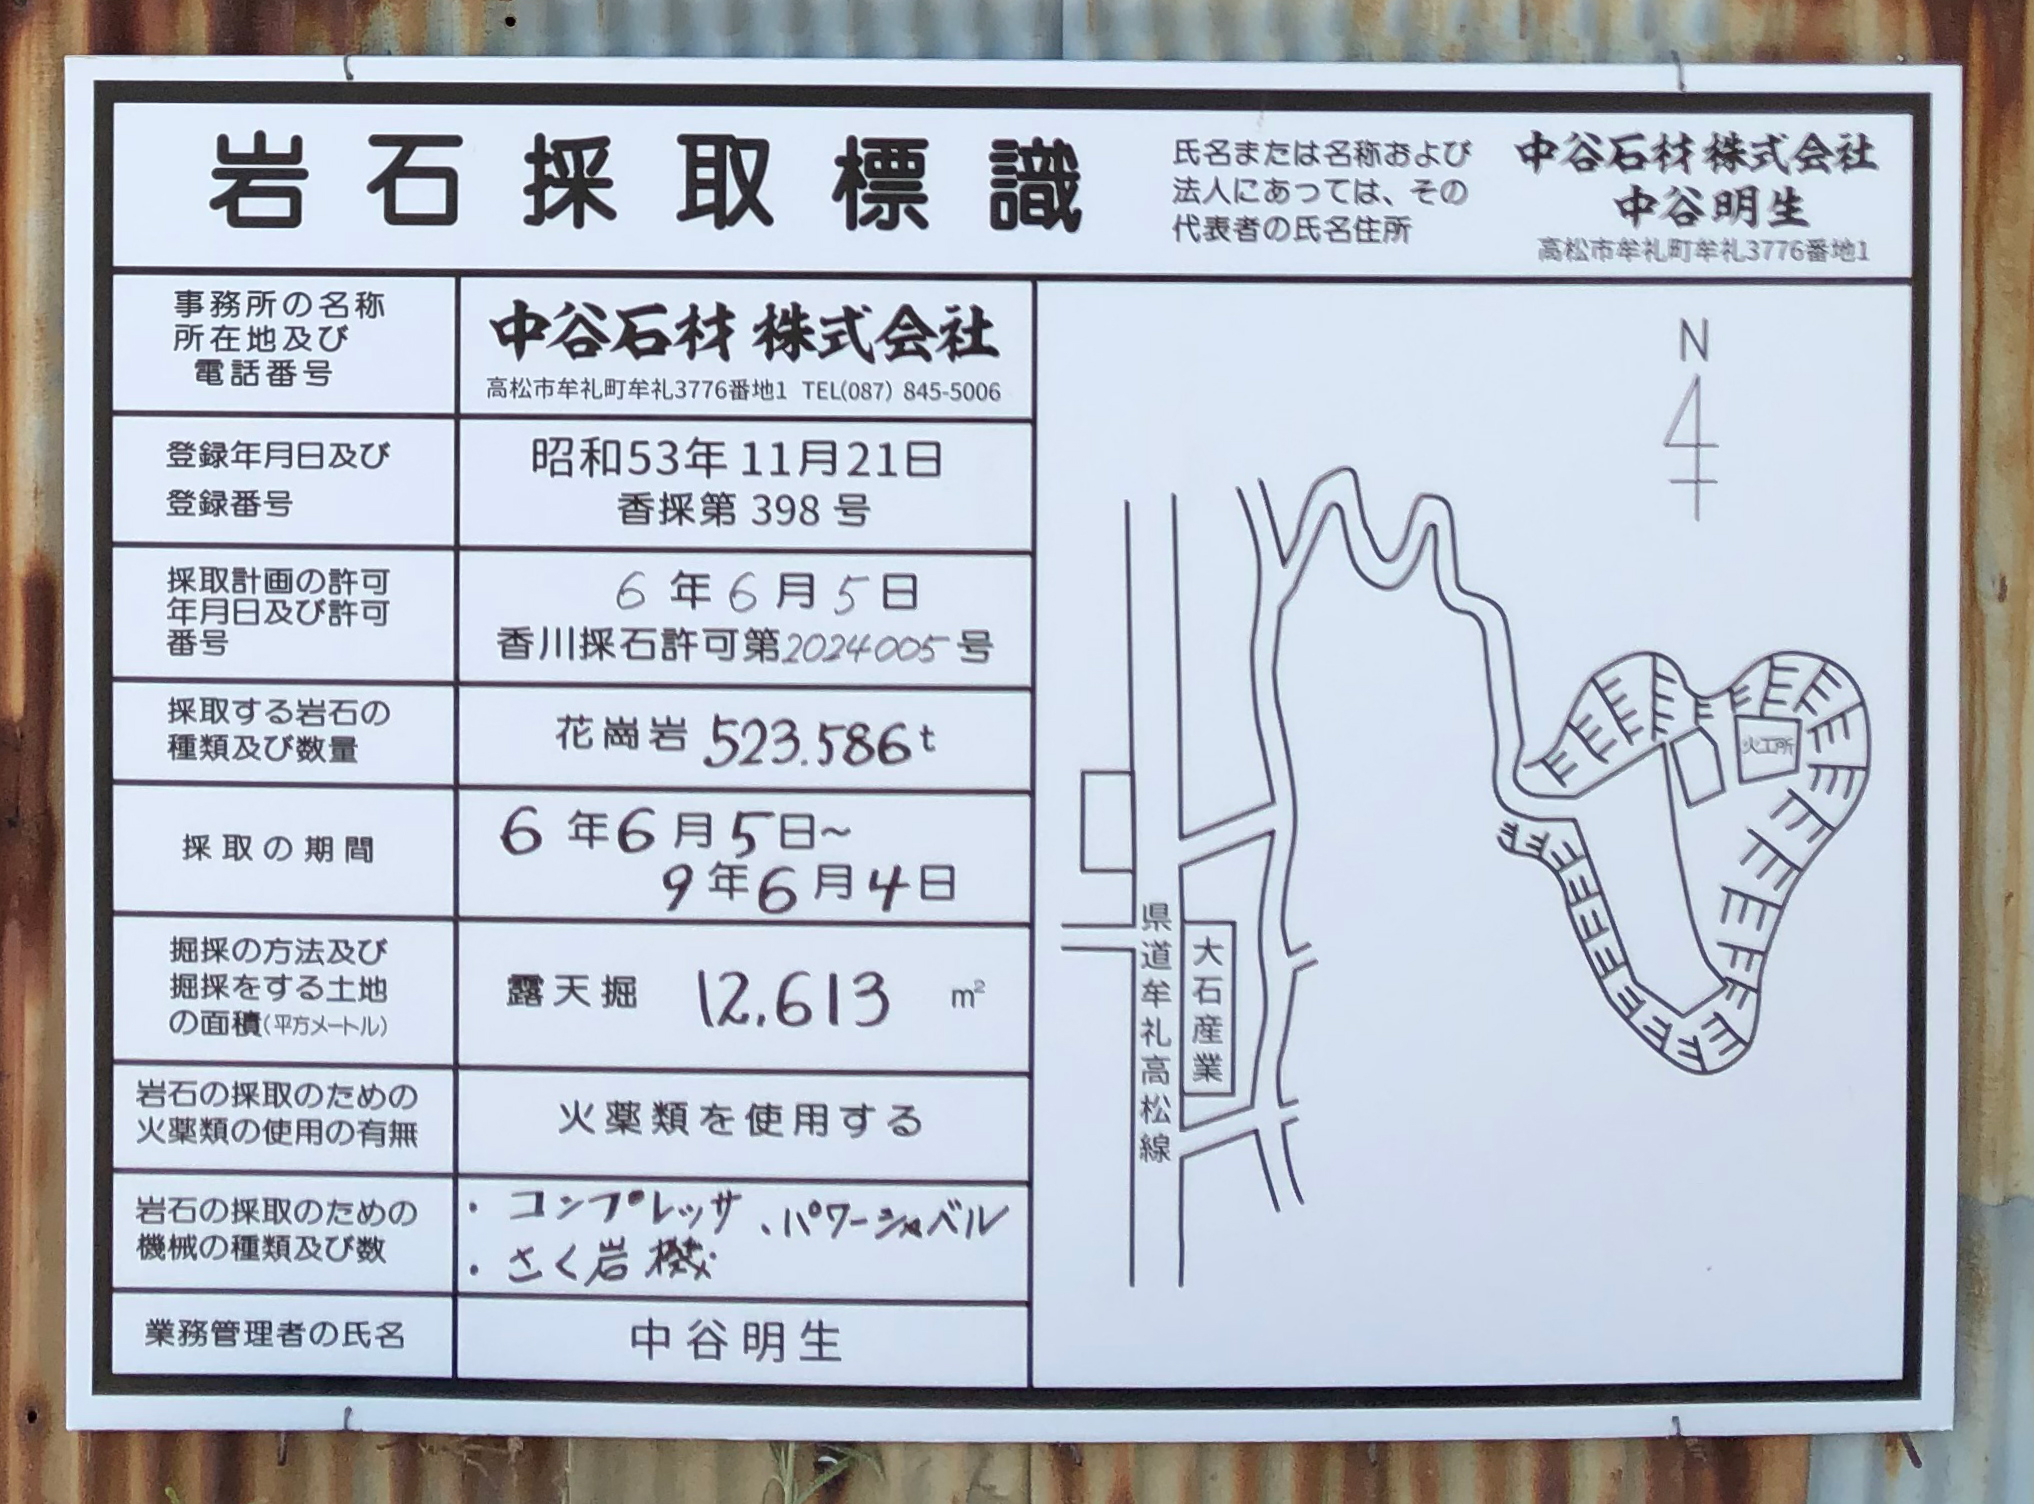 岩石採取標識
氏名または名称および
法人にあっては、その
代表者の氏名住所
中谷石材株式会社
中谷明生
高松市牟礼町牟礼3776番地1
事務所の名称
所在地及び
電話番号
中谷石材株式会社
高松市牟礼町牟礼3776番地1 TEL(087) 845-5006
登録年月日及び
登録番号
昭和53年11月21日
香採第398号
採取計画の許可
年月日及び許可
番号
6年6月5日
香川採石許可第2024005号
採取する岩石の
種類及び数量
花崗岩 523.586t
採取の期間
6年6月5日~
9年6月4日
掘採の方法及び
掘採をする土地
の面積(平方メートル)
露天掘 12.613 m²
岩石の採取のための
火薬類の使用の有無
火薬類を使用する
岩石の採取のための
機械の種類及び数
・コンプレッサ、パワーショベル
・さく岩機
業務管理者の氏名
中谷明生
N
火工所
県道牟礼高松線
大石産業